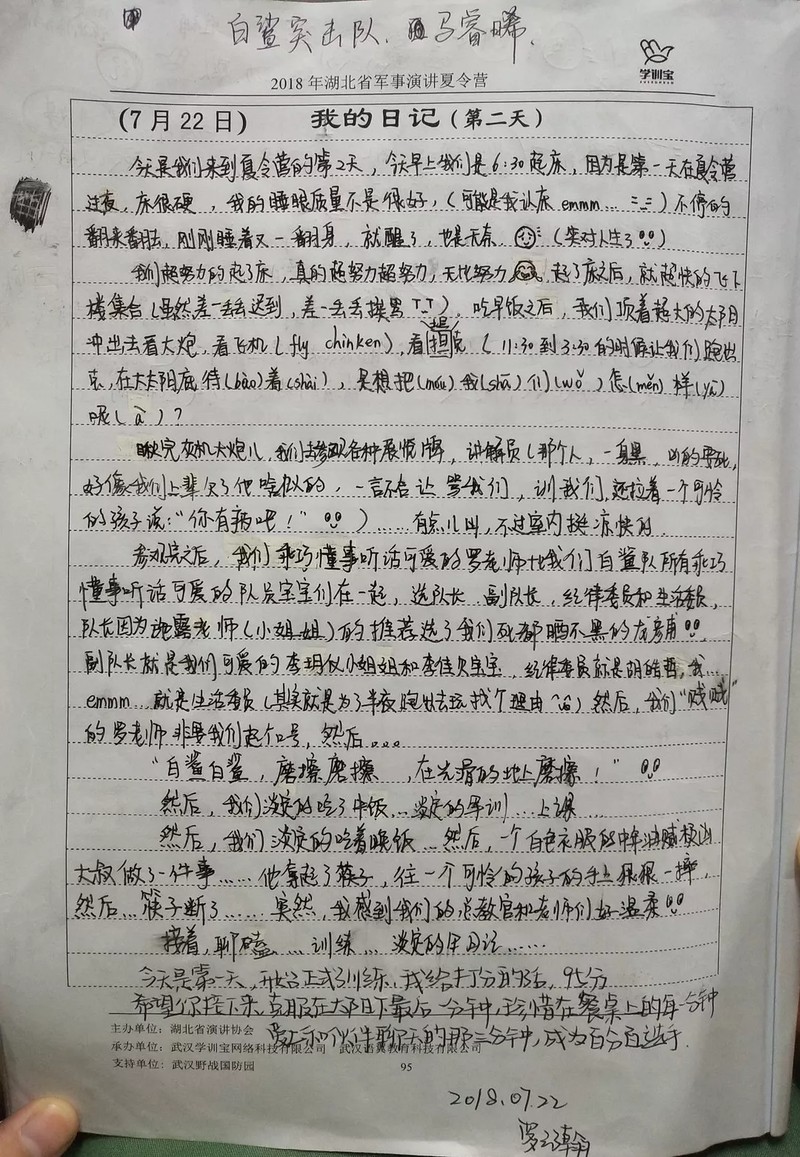 白鲨突击队. 马睿晞.
学训宝
2018 年湖北省军事演讲夏令营
(7 月 22 日) 我的日记(第二天)
今天是我们来到夏令营的第2天，今天早上我们是6:30起床，因为是第一天在夏令营
过夜，床很硬，我的睡眠质量不是很好，(可能是我认床 emmm... =_=) 不停的
翻来翻去，刚刚睡着又一翻身，就醒了，也是无奈 (笑对人生了)
我们超努力的起了床，真的超努力超努力，无比努力，起了床之后，就超快的飞下
楼集合(虽然差一丢丢迟到，差一丢丢挨骂 T_T)，吃早饭之后，我们顶着超大的太阳
冲出去看大炮，看飞机(fly chinken)，看坦克 (11:30到3:30的时候让我们跑出
来，在大太阳底待(bào)着(shài)，是想把(mōu)我(shā)们(wǒ)怎(mén)样(yà)
呢(à)？
瞅完灰机大炮儿，我们去参观各种展览牌，讲解员(那个人，一身黑，凶的要死，
好像我们上辈欠了他啥似的，一言不合让 骂我们，训我们，还拉着一个可怜
的孩子说："你有病吧！") ……有点儿凶，不过室内挺凉快的.
参观完之后，我们乖巧懂事听话可爱的罗老师让我们白鲨队所有乖巧
懂事听话可爱的队员宝宝们在一起，选队长，副队长，纪律委员和生活委员，
队长因为 老师(小姐姐)的推荐选了我们死都晒不黑的
副队长就是我们可爱的李玥 小姐姐和李佳 宝宝，纪律委员就是胡皓哲，我…
emmm…就是生活委员(其实就是为了半夜跑出去玩找个理由) 然后，我们"贼贼"
的罗老师非要我们起个口号，然后。。。
"白鲨白鲨，磨擦磨擦，在光滑的地上磨擦！"
然后，我们淡定的吃了午饭…淡定的军训…上课…
然后，我们淡定的吃着晚饭…然后，一个白色衣服的中年油腻极凶
大叔做了一件事……他拿起了筷子，往一个可怜的孩子的手上狠狠一摔，
然后…筷子断了……突然，我感到我们的总教官和老师们好温柔
接着，聊嗑……训练…淡定的写日记……
今天是第一天，开始正式训练，我给打分的话，95分
希望你接下来，克服在太阳下最后一分钟，珍惜在餐桌上的每一分钟
爱上和伙伴聊天的那三分钟，成为百分百选手.
主办单位：湖北省演讲协会
承办单位：武汉学训宝网络科技有限公司 武汉语翼教育科技有限公司
支持单位：武汉野战国防园
95
2018.07.22